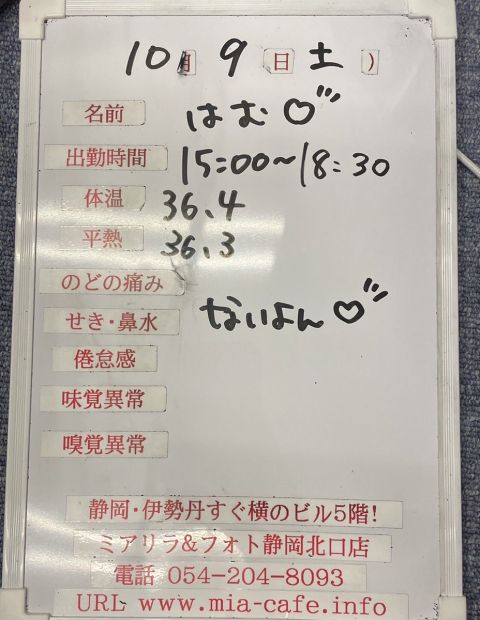 10月 9 日 土 )
名前 はむ♡
出勤時間 15:00~18:30
体温 36.4
平熱 36.3
のどの痛み
せき・鼻水 ないよん♡
倦怠感
味覚異常
嗅覚異常
静岡・伊勢丹すぐ横のビル5階!
ミアリラ&フォト静岡北口店
電話 054-204-8093
URL www.mia-cafe.info